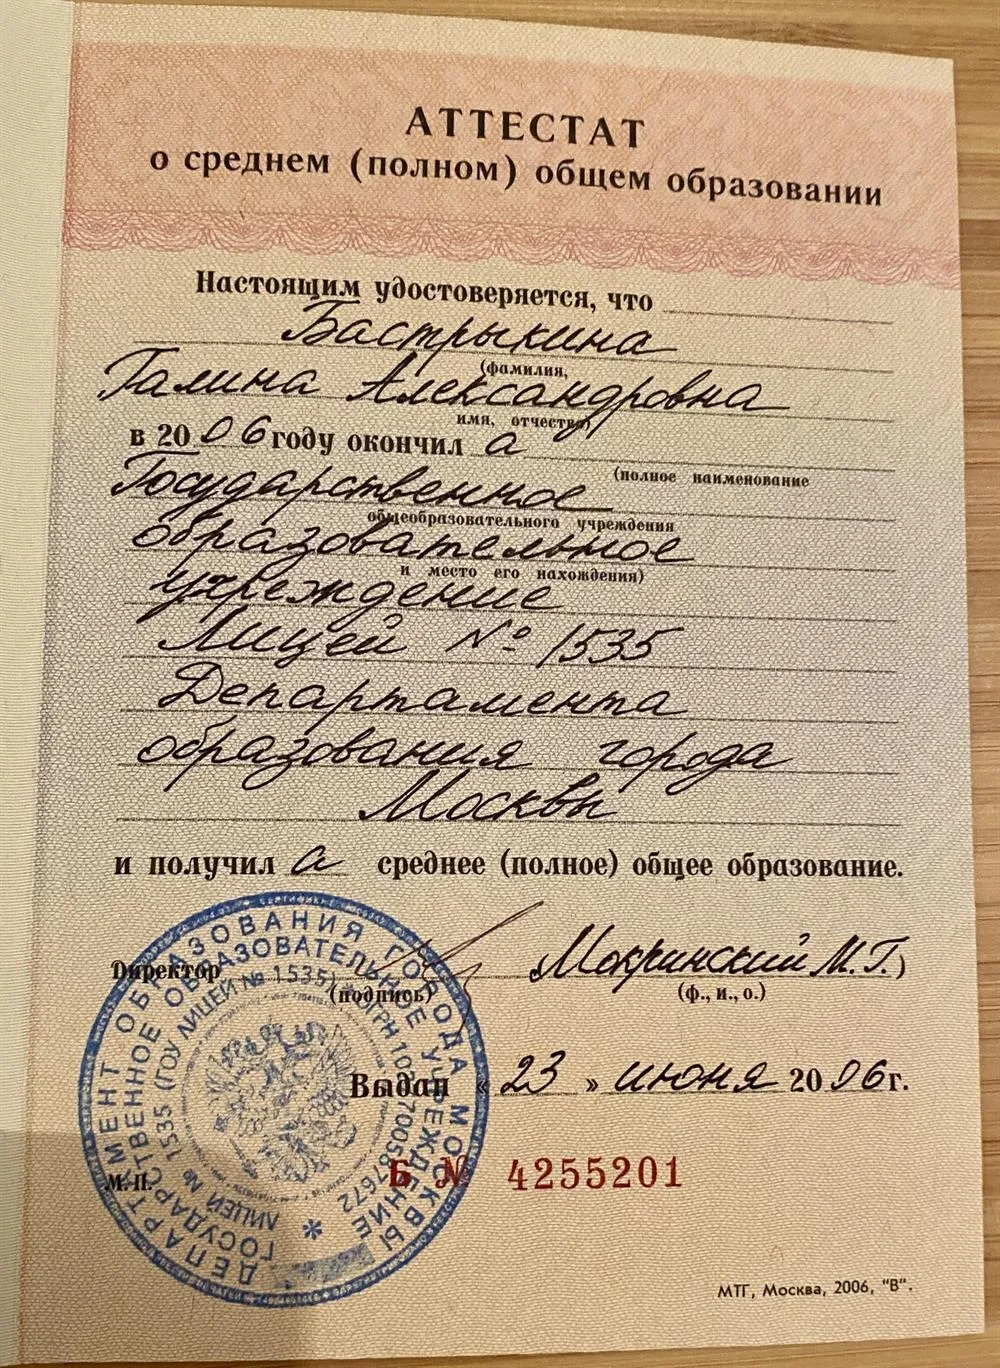 АТТЕСТАТ
о среднем (полном) общем образовании
Настоящим удостоверяется, что
Бастрыкина
(фамилия,
Галина Александровна
имя, отчество)
в 2006 году окончил а
(полное наименование
Государственное
общеобразовательного учреждения
образовательное
и место его нахождения)
учреждение
Лицей № 1535
Департамента
образования города
Москвы
и получил а среднее (полное) общее образование.
Директор Мокринский М.Г.)
(подпись) (ф., и., о.)
Выдан « 23 » июня 2006 г.
М. П.
Б № 4255201
МТГ, Москва, 2006, "В".
ДЕПАРТАМЕНТ ОБРАЗОВАНИЯ ГОРОДА МОСКВЫ
ГОСУДАРСТВЕННОЕ ОБРАЗОВАТЕЛЬНОЕ УЧРЕЖДЕНИЕ
ЛИЦЕЙ № 1535 (ГОУ ЛИЦЕЙ № 1535)